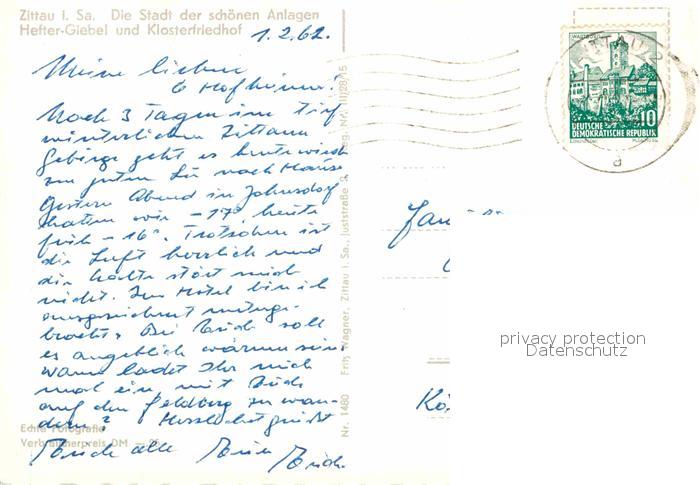 Zittau i. Sa. Die Stadt der schönen Anlagen
Hefter-Giebel und Klosterfriedhof
1.2.62.
Meine lieben
6 Hofheimer!
Nach 3 Tagen im tief
winterlichen Zittauer
Gebirge geht es heute wieder
zu guten nach Hause
Gestern Abend in Johnsdorf
hatten wir - 17°, heute
früh - 16°. Trotzdem ist
die Luft herrlich und
die Kälte stört mich
nicht. Im Hotel bin ich
ausgezeichnet unterge-
bracht. Bei Euch soll
es angeblich wärmer sein
wann ladet Ihr mich
mal ein mit Euch
auf den Feldberg zu wan-
dern? Herzlichst grüßt
Euch alle Euer Erich.
Echte Fotografie
Verbraucherpreis DM
Nr. 1480 Fritz Wagner, Zittau i. Sa., Juststraße
III/28/15
WARTBURG
10
DEUTSCHE
DEMOKRATISCHE REPUBLIK
ZITTAU 2
a
Fam
Kö
privacy protection
Datenschutz